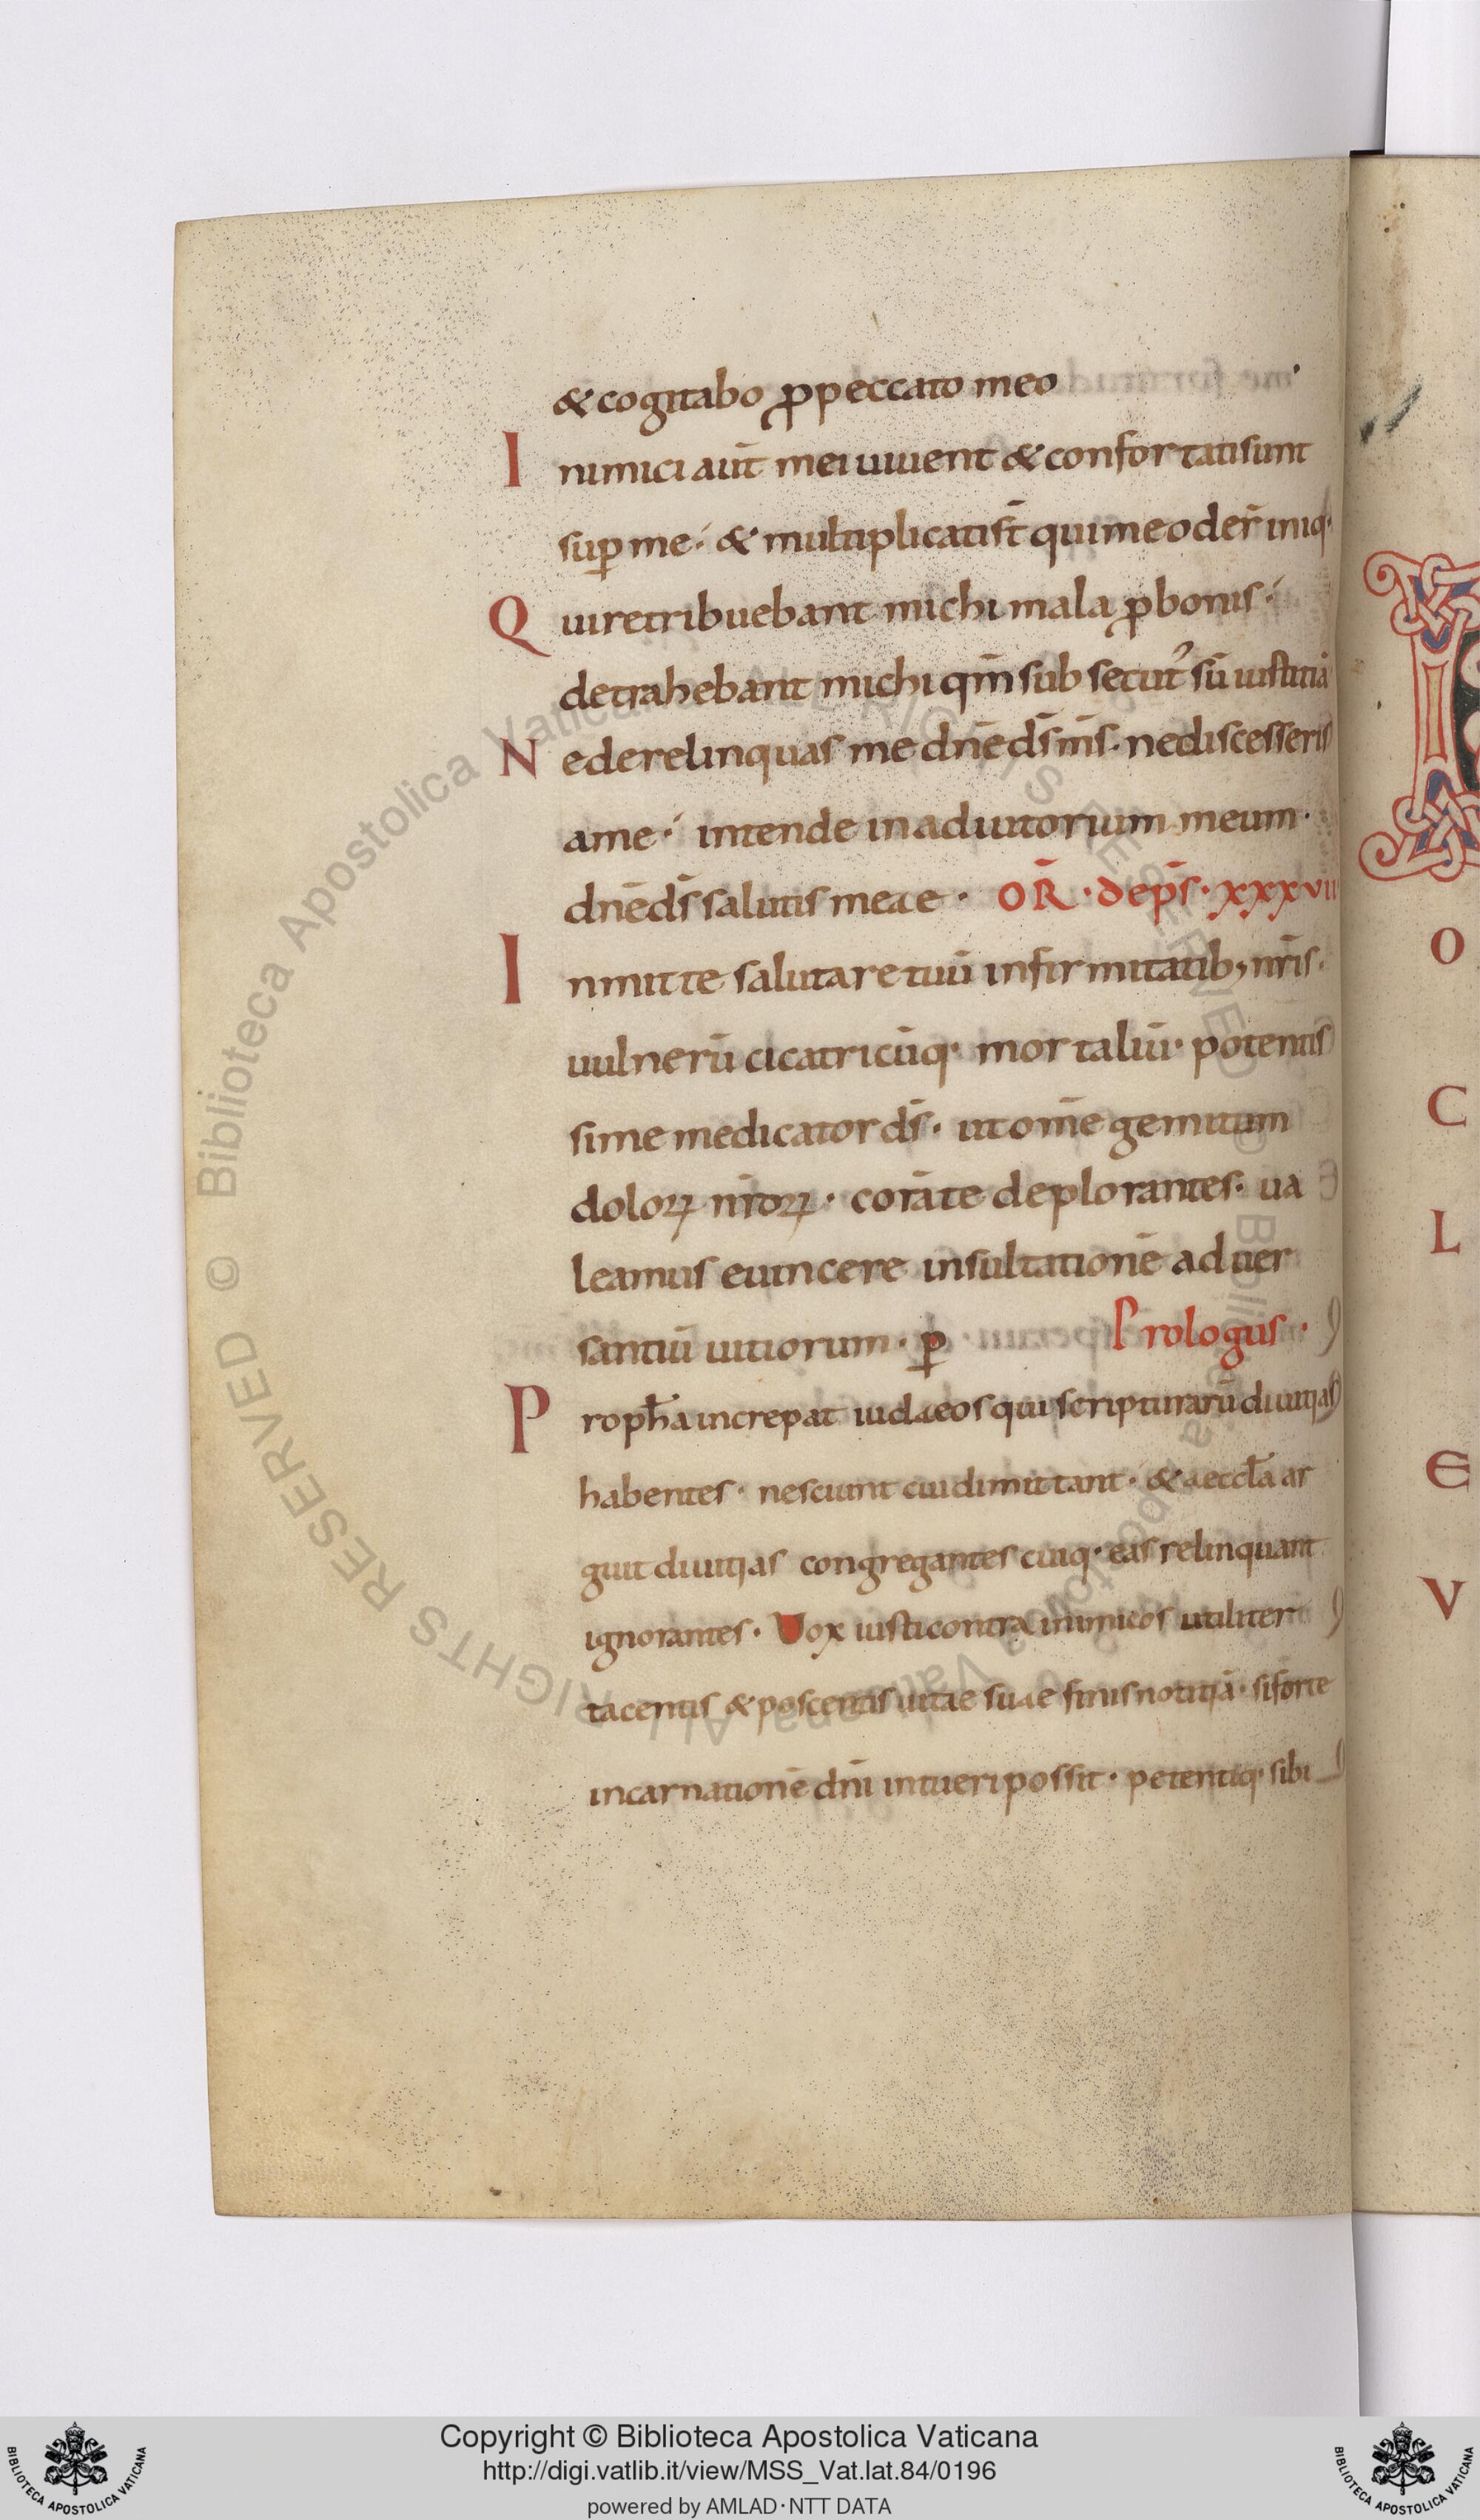 & cogitabo ꝓ peccato meo
Inimici aut̄ mei uiuent & confortati sunt
suꝑ me · & multiplicati st̄ qui me oder̄ iniq·
Qui retribuebant michi mala ꝓ bonis ·
detrahebant michi qm̄ subsecut᾿ sū iustitiā
Ne derelinquas me dn̄e ds̄ ms̄ · ne discesseris
a me · intende in adiutorium meum ·
dn̄e ds̄ salutis meae · OR̄ · de ps̄ · xxxvii
Inmitte salutare tuū infirmitatib; nr̄is ·
uulnerū cicatricūq· mortaliū · potentis
sime medicator ds̄ · ut om̄e gemitum
doloꝝ nr̄oꝝ · corā te deplorantes · ua
leamus euincere insultationē aduer
santiū uitiorum · ꝑ Prologus ·
Proph̄a increpat iudaeos qui scripturarū diuitias
habentes · nesciunt cui dimittant · & aeccl̄a ar
guit diuitias congregantes cuiq· eas relinquant
ignorantes · Vox iusti contra inimicos utiliter
tacentis & poscentis uitae suae finis notitiā · si forte
incarnationē dn̄i intueri possit · petentiq· sibi
O
C
L
E
V
Copyright © Biblioteca Apostolica Vaticana
http://digi.vatlib.it/view/MSS_Vat.lat.84/0196
powered by AMLAD·NTT DATA
BIBLIOTECA APOSTOLICA VATICANA
BIBLIOTECA APOSTOLICA VATICANA